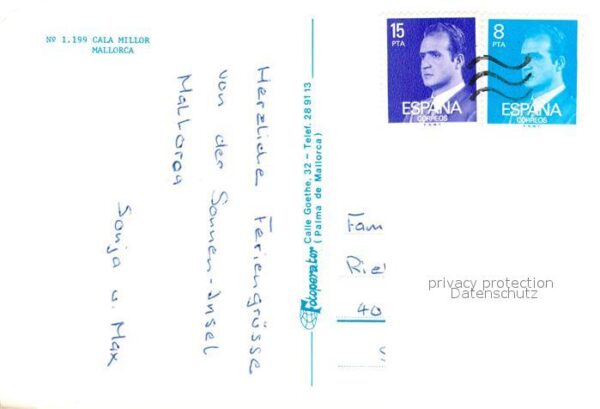 Nº 1.199 CALA MILLOR
MALLORCA
Herzliche Feriengrüsse
von der Sonnen-Insel
Mallorca
Sonja u. Max
Fotoperator Calle Goethe, 32 – Telef. 28 91 13
(Palma de Mallorca)
15
PTA
ESPAÑA
CORREOS
8
PTA
ESPAÑA
CORREOS
Fam
40
privacy protection
Datenschutz